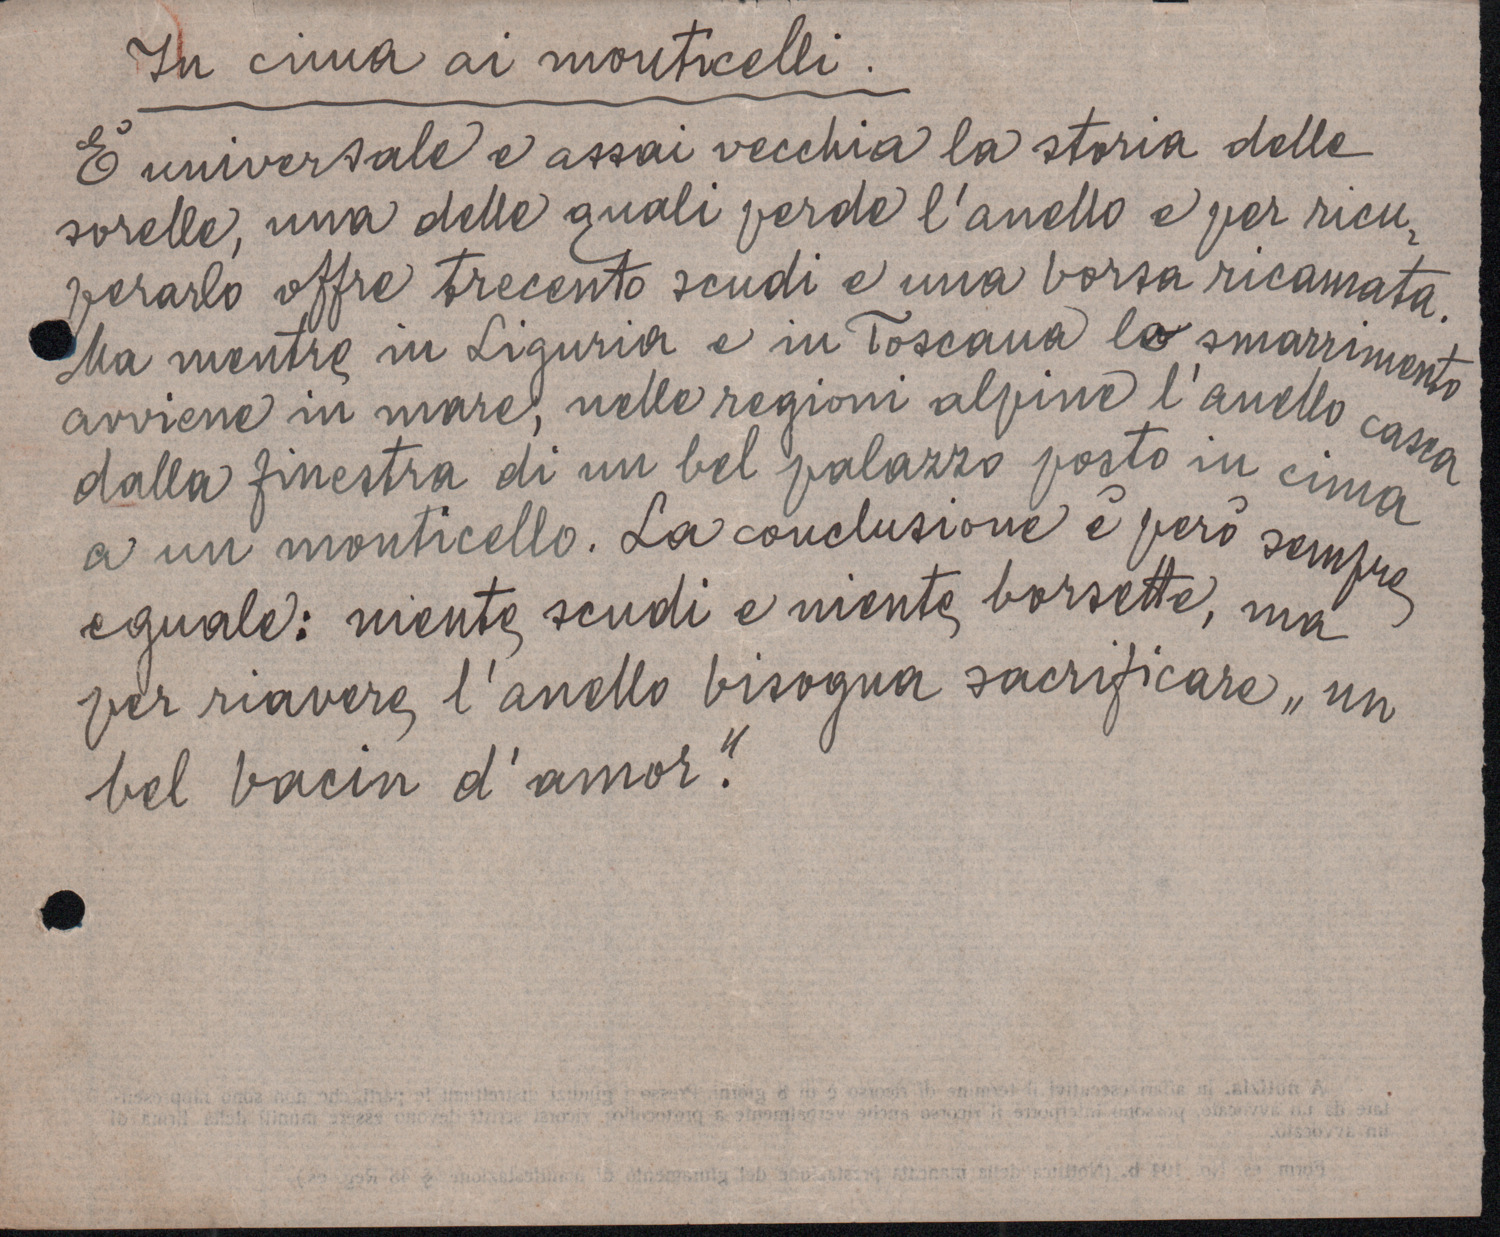 In cima ai monticelli.
È universale e assai vecchia la storia delle
sorelle, una delle quali perde l'anello e per ricu-
perarlo offre trecento scudi e una borsa ricamata.
Ma mentre in Liguria e in Toscana lo smarrimento
avviene in mare, nelle regioni alpine l'anello casca
dalla finestra di un bel palazzo posto in cima
a un monticello. La conclusione è però sempre
eguale: niente scudi e niente borsette, ma
per riavere l'anello bisogna sacrificare „un
bel bacin d'amor".